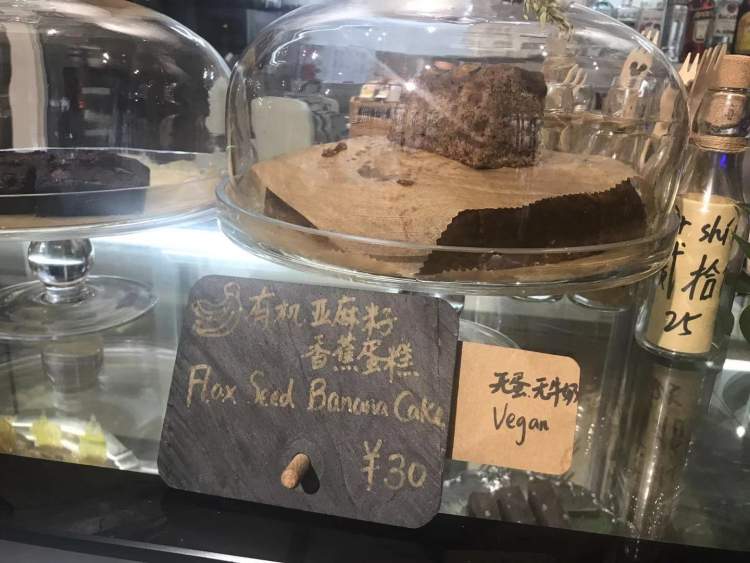 有机亚麻籽
香蕉蛋糕
Flax Seed Banana Cake
¥30
无蛋.无牛奶
Vegan
shi
拾
25